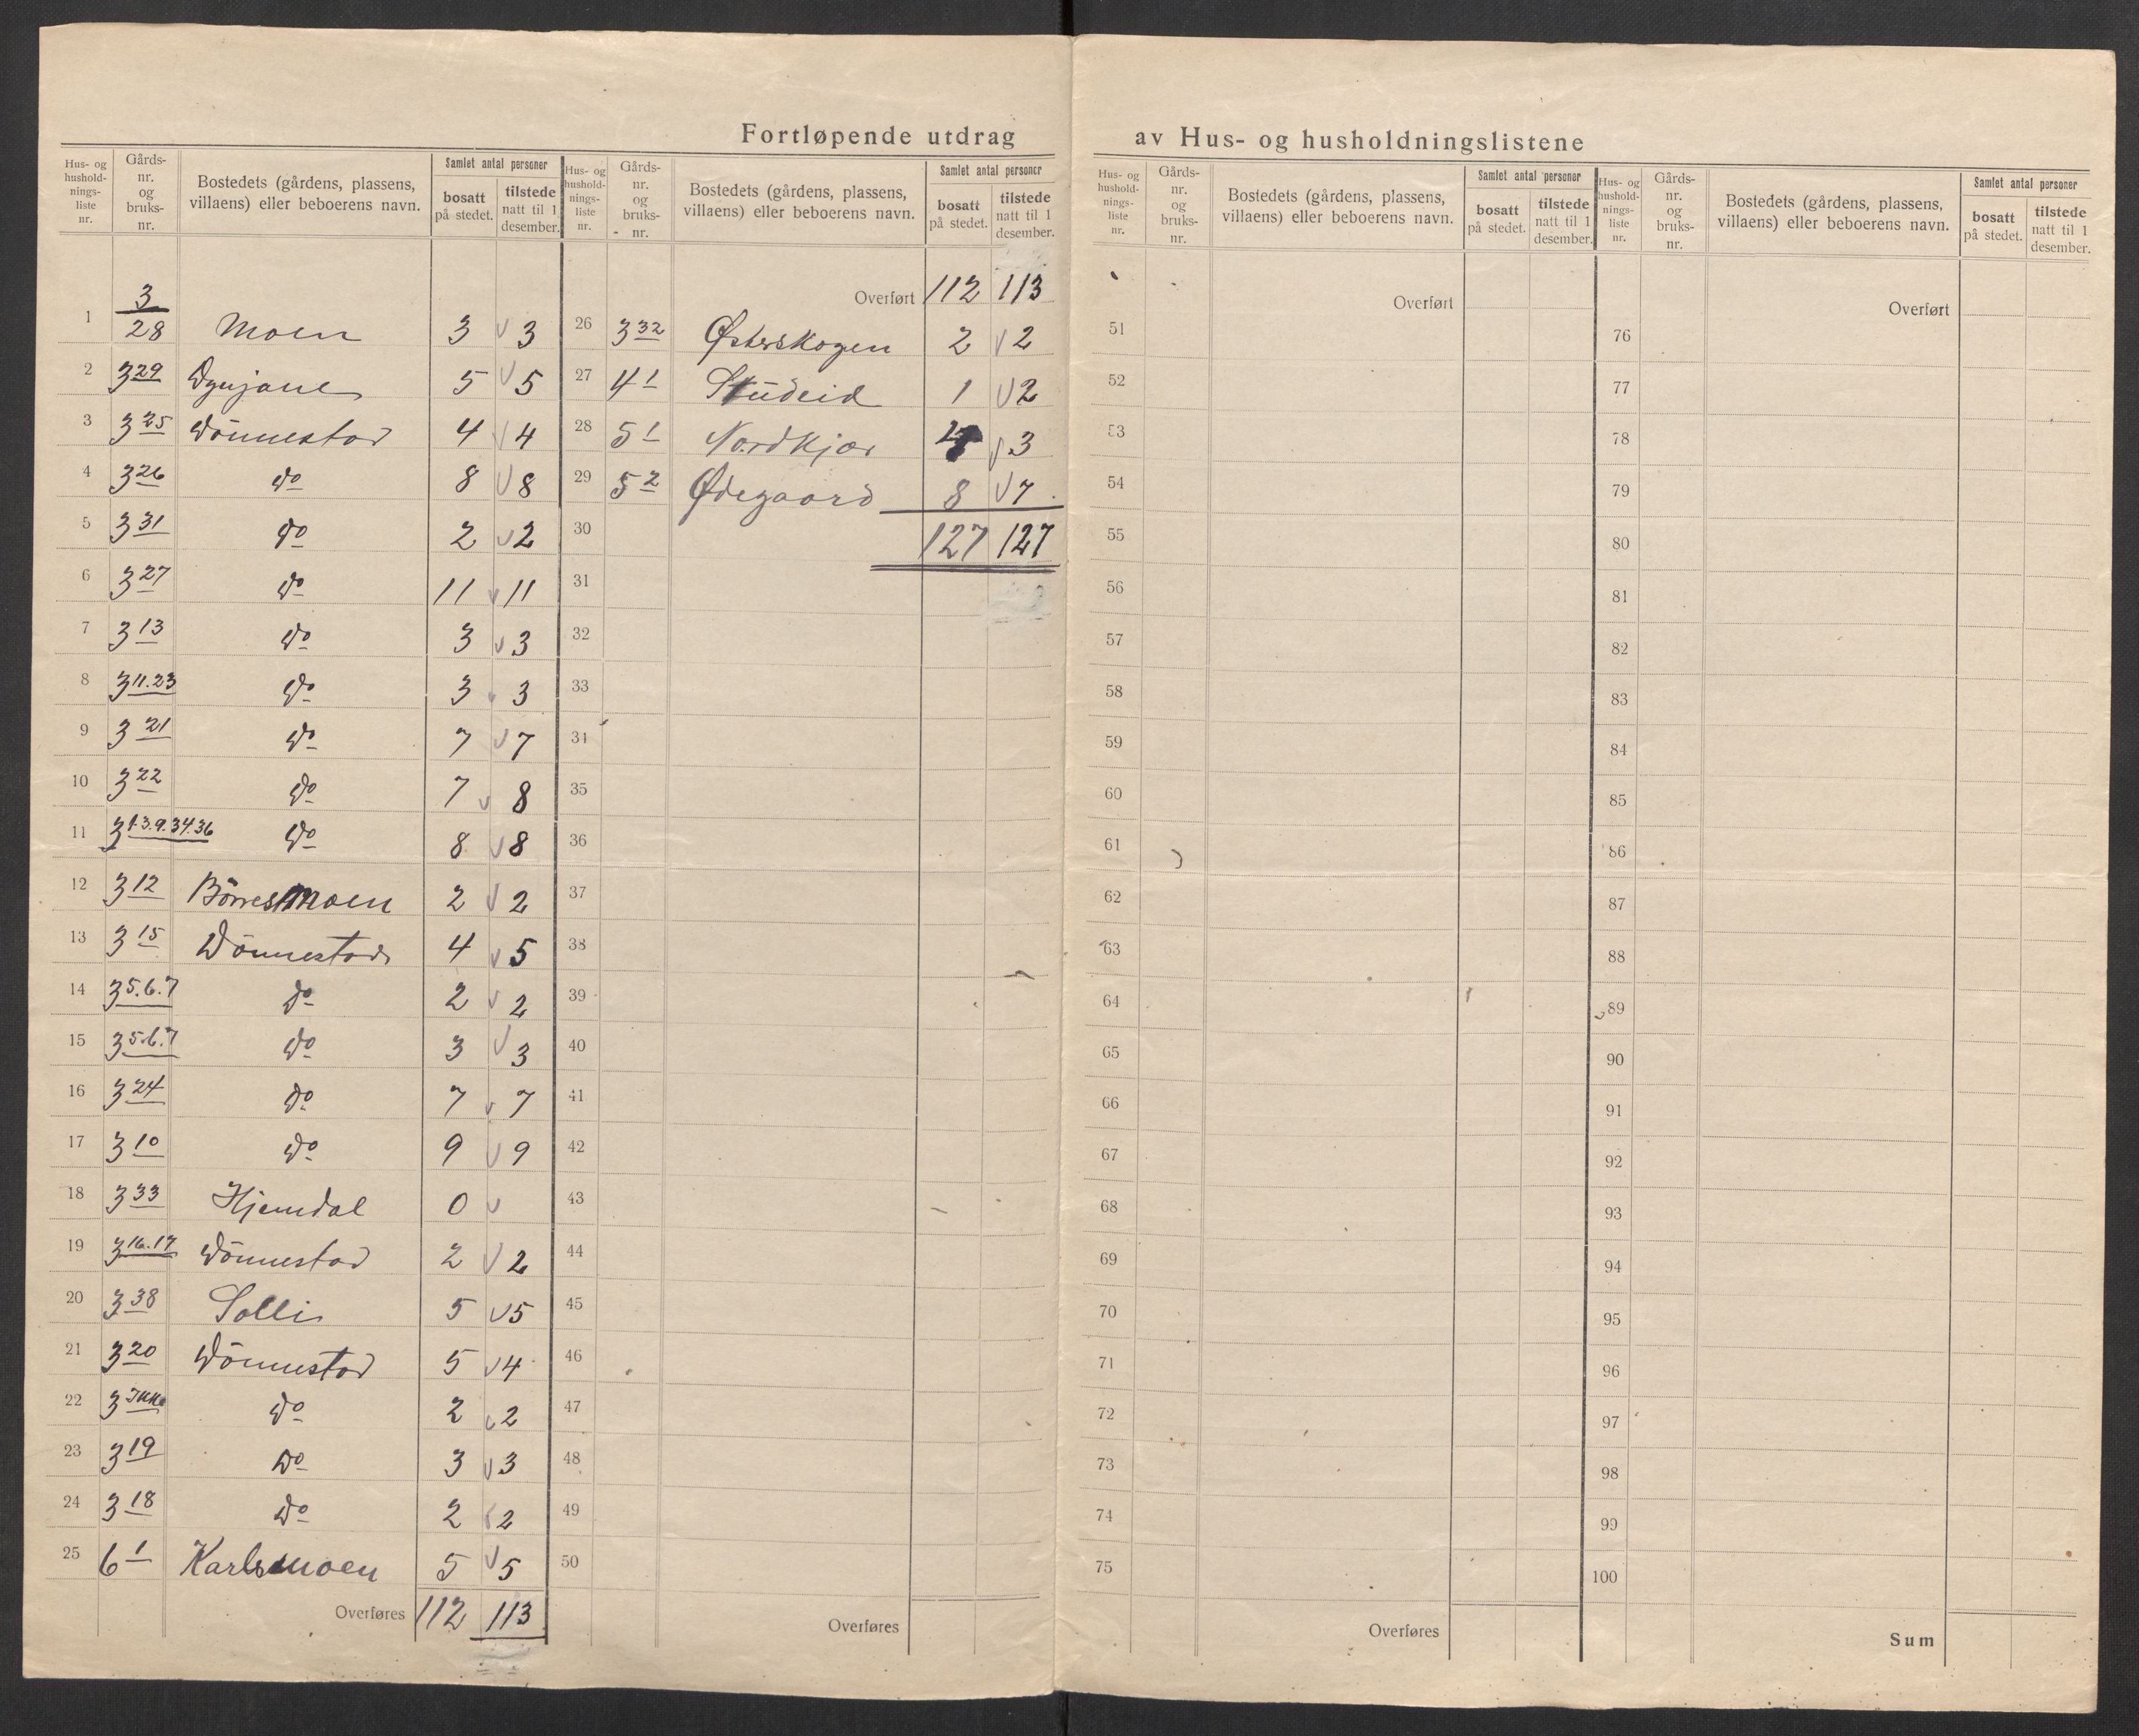 Fortløpende utdrag av Hus- og husholdningslistene
Hus- og husholdningsliste nr. | Gårds- nr. og bruks- nr. | Bostedets (gårdens, plassens, villaens) eller beboerens navn. | Samlet antal personer | bosatt på stedet. | tilstede natt til 1 desember.
1 3/28 Moen 3 v 3
2 3 29 5 v 5
3 3 25 Dönnestad 4 v 4
4 3 26 Do 8 v 8
5 3 31 Do 2 v 2
6 3 27 Do 11 v 11
7 3 13 Do 3 v 3
8 3 11.23 Do 3 v 3
9 3 21 Do 7 v 7
10 3 22 Do 7 v 8
11 3 1.3.9.34.36 Do 8 v 8
12 3 12 Börresmoen 2 v 2
13 3 15 Dönnestad 4 v 5
14 3 5.6.7 Do 2 v 2
15 3 5.6.7 Do 3 v 3
16 3 24 Do 7 v 7
17 3 10 Do 9 v 9
18 3 33 Hjemdal 0 v
19 3 16.17 Dönnestad 2 v 2
20 3 38 Solli 5 v 5
21 3 20 Dönnestad 5 v 4
22 3 Ikke Do 2 v 2
23 3 19 Do 3 v 3
24 3 18 Do 2 v 2
25 6 1 Karlsmoen 5 v 5
Overføres 112 113
Hus- og husholdningsliste nr. | Gårds- nr. og bruks- nr. | Bostedets (gårdens, plassens, villaens) eller beboerens navn. | Samlet antal personer | bosatt på stedet. | tilstede natt til 1 desember.
Overført 112 113
26 3 32 Østerskogen 2 v 2
27 4 1 Studeid 1 v 2
28 5 1 Nordkjær 4 v 3
29 5 2 Ødegaard 8 v 7
30 127 127
31
32
33
34
35
36
37
38
39
40
41
42
43
44
45
46
47
48
49
50
Overføres
Hus- og husholdningsliste nr. | Gårds- nr. og bruks- nr. | Bostedets (gårdens, plassens, villaens) eller beboerens navn. | Samlet antal personer | bosatt på stedet. | tilstede natt til 1 desember.
Overført
51
52
53
54
55
56
57
58
59
60
61
62
63
64
65
66
67
68
69
70
71
72
73
74
75
Overføres
Hus- og husholdningsliste nr. | Gårds- nr. og bruks- nr. | Bostedets (gårdens, plassens, villaens) eller beboerens navn. | Samlet antal personer | bosatt på stedet. | tilstede natt til 1 desember.
Overført
76
77
78
79
80
81
82
83
84
85
86
87
88
89
90
91
92
93
94
95
96
97
98
99
100
Sum